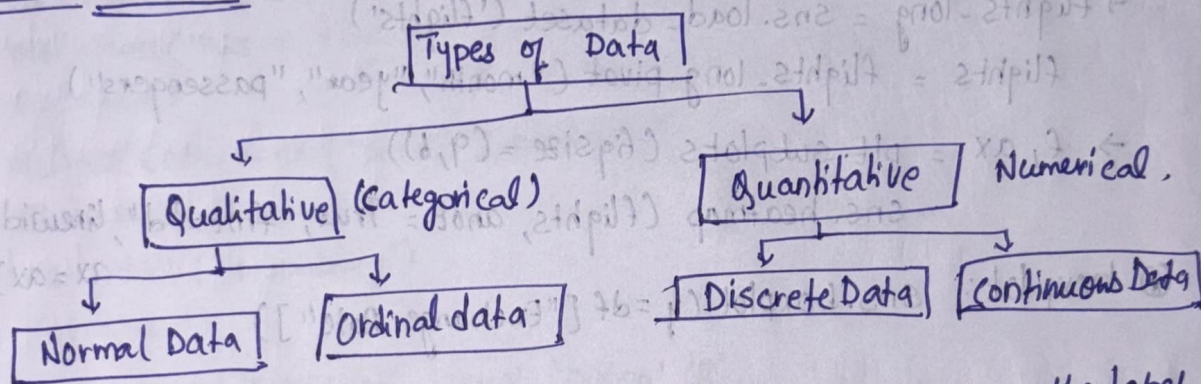 Types of Data
Qualitative (Categorical)
Quantitative Numerical.
Normal Data
Ordinal data
Discrete Data
Continuous Data
the label